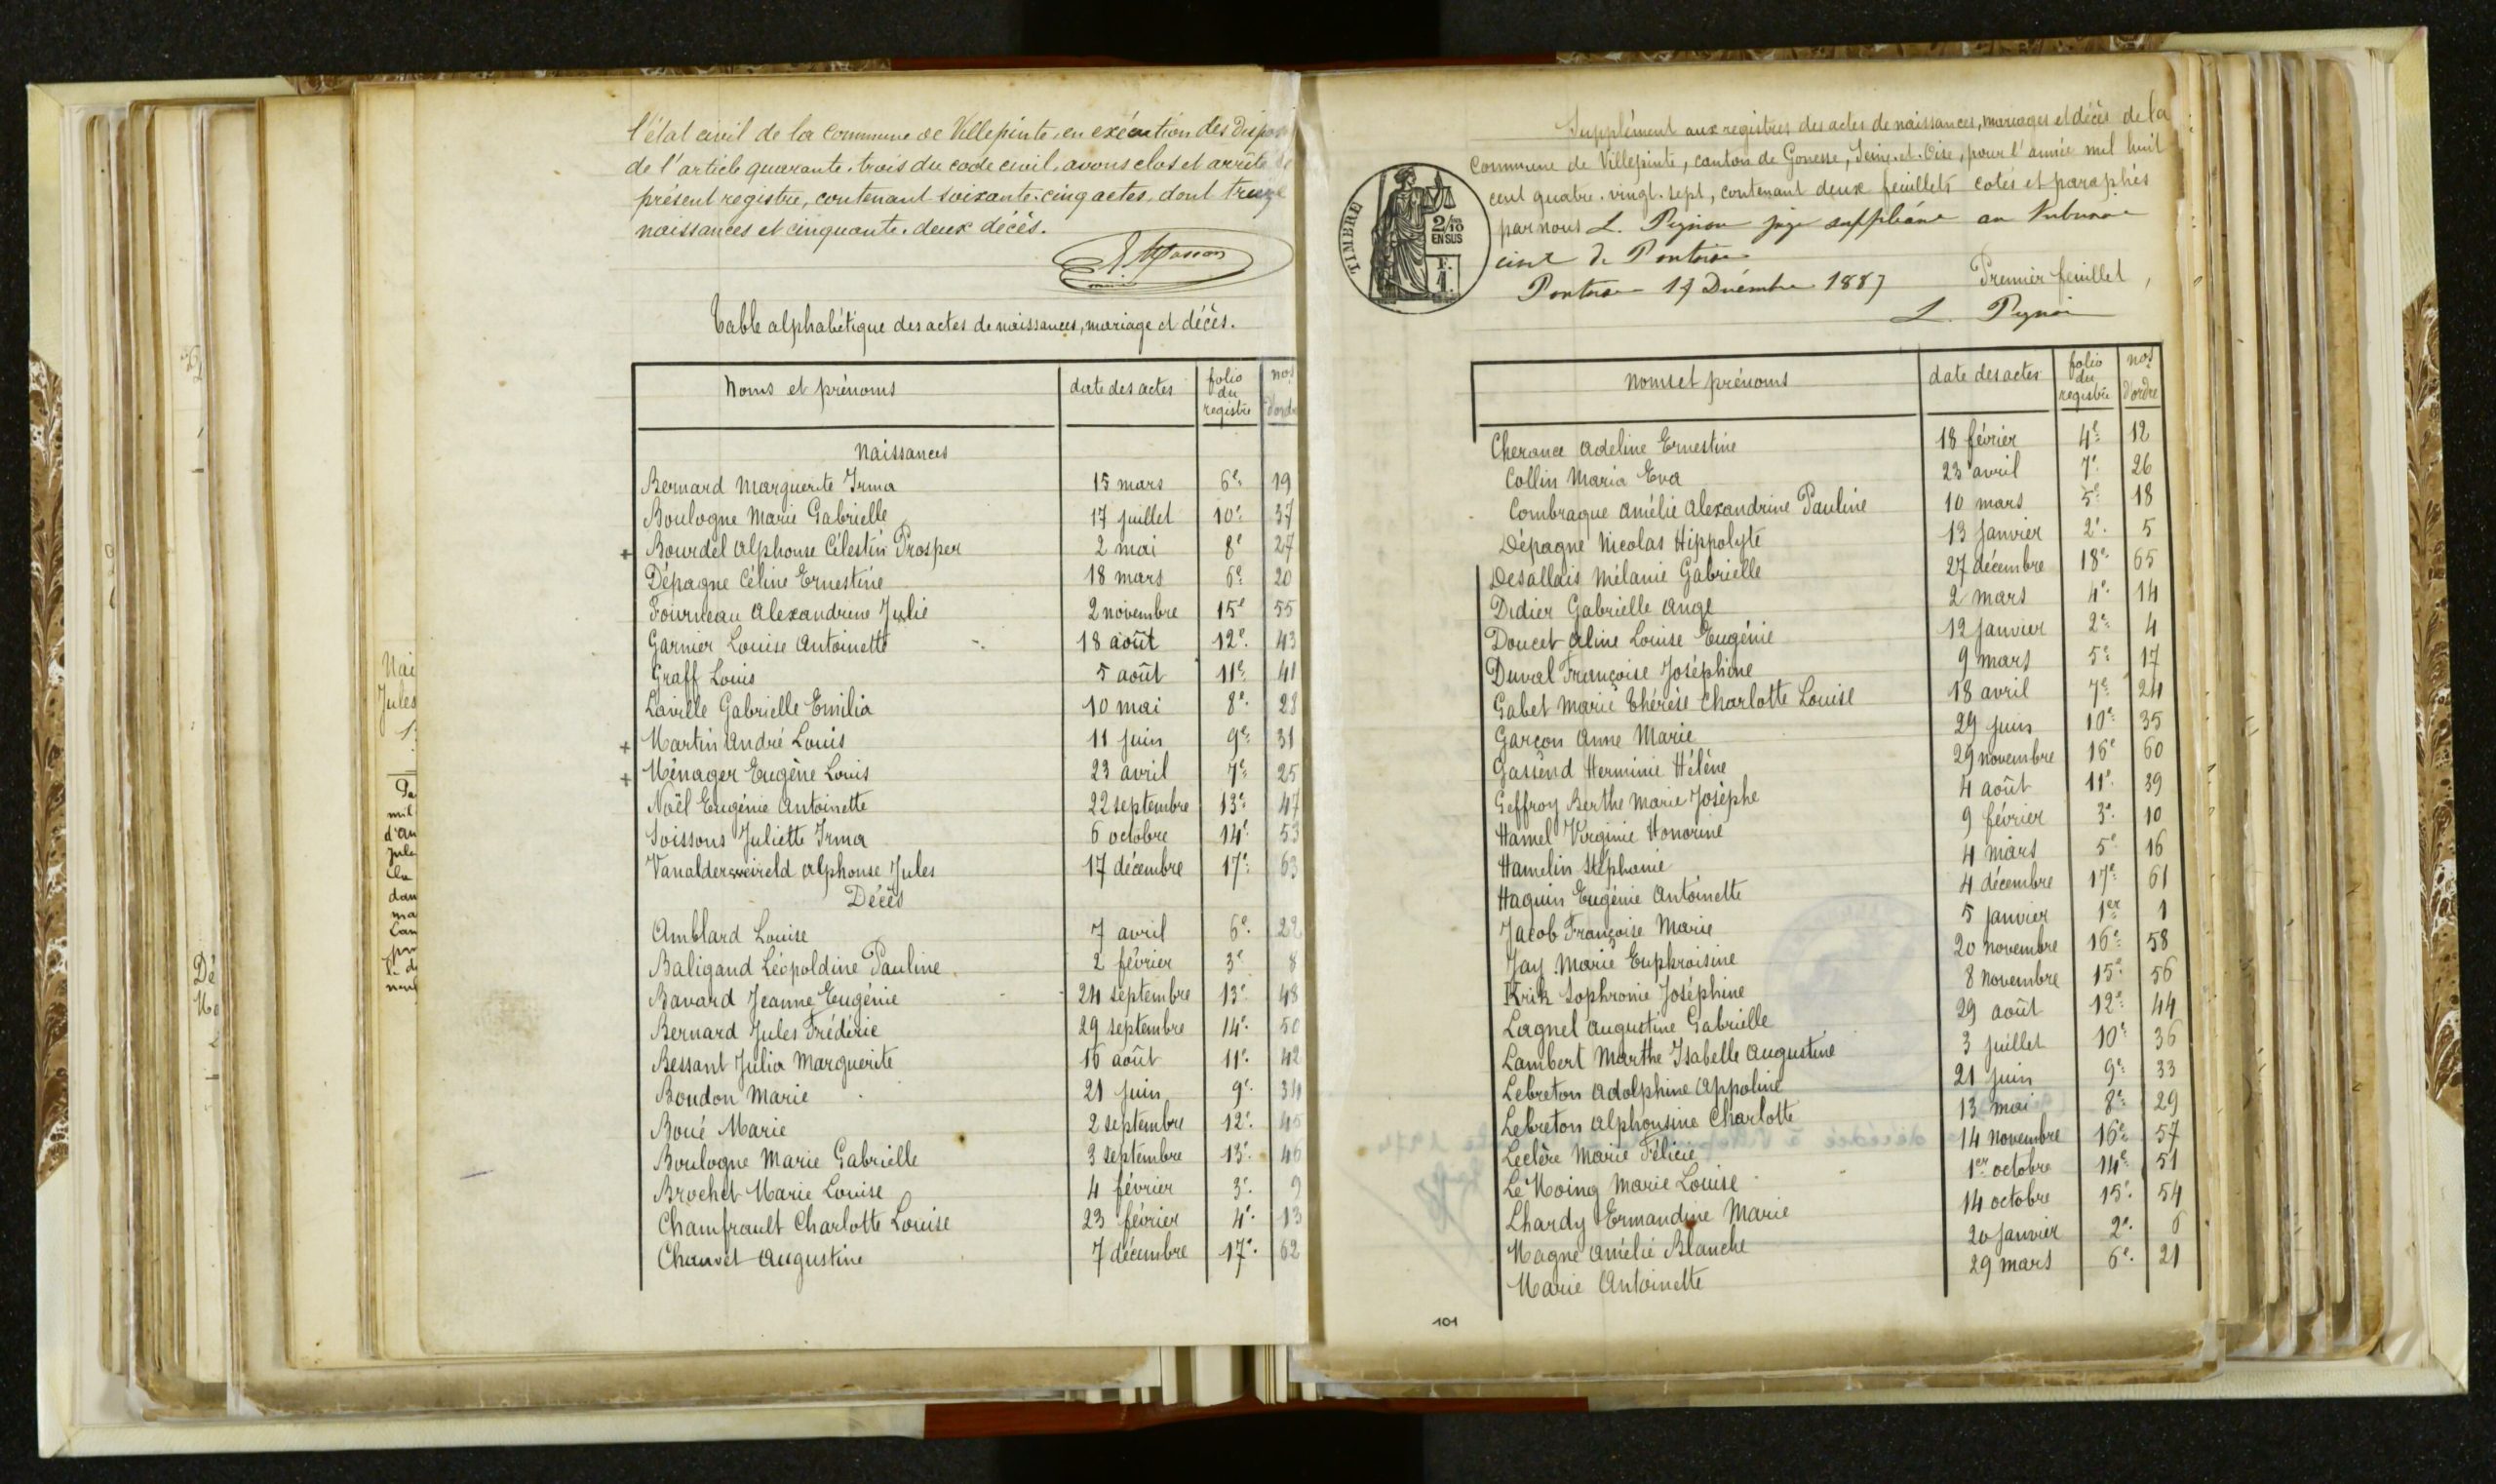 l'état civil de la Commune de Villepinte, en exécution des dispos
de l'article quarante-trois du code civil, avons clos et arrêté le
présent registre, contenant soixante-cinq actes, dont treize
naissances et cinquante-deux décès.
A. Masson
Table alphabétique des actes de naissances, mariage et décès.
Noms et prénoms date des actes folio du registre nos d'ordre
Naissances
Bernard Marguerite Irma 15 mars 6e 19
Boulogne Marie Gabrielle 17 juillet 10e 37
+ Bourdel Alphonse Célestin Prosper 2 mai 8e 27
Dépagne Céline Ernestine 18 mars 6e 20
Fourneau Alexandrine Julie 2 novembre 15e 55
Garnier Louise Antoinette 18 août 12e 43
Graff Louis 5 août 11e 41
Laville Gabrielle Emilia 10 mai 8e 28
+ Martin André Louis 11 juin 9e 31
+ Ménager Eugène Louis 23 avril 7e 25
Noël Eugénie Antoinette 22 septembre 13e 47
Soissons Juliette Irma 6 octobre 14e 53
Vanalderweireld Alphonse Jules 17 décembre 17e 63
Décès
Amblard Louise 7 avril 6e 22
Baligand Léopoldine Pauline 2 février 3e 8
Bavard Jeanne Eugénie 24 septembre 13e 48
Bernard Jules Frédéric 29 septembre 14e 50
Bessant Julia Marguerite 16 août 11e 42
Boudon Marie 21 juin 9e 34
Boué Marie 2 septembre 12e 45
Boulogne Marie Gabrielle 3 septembre 13e 46
Brochet Marie Louise 4 février 3e 9
Chamfrault Charlotte Louise 23 février 4e 13
Chauvet Augustine 7 décembre 17e 62
Nai
Jules
Dé
Supplément aux registres des actes de naissances, mariages et décès de la
Commune de Villepinte, canton de Gonesse, Seine-et-Oise, pour l'année mil huit
cent quatre-vingt-sept, contenant deux feuillets cotés et paraphés
par nous L. Pignon juge suppléant au Tribunal
civil de Pontoise
Pontoise 17 Décembre 1887 Premier feuillet
TIMBRE
2/10 EN SUS
F. 1.
Noms et prénoms date des actes folio du registre nos d'ordre
Cherance Adeline Ernestine 18 février 4e 12
Collin Maria Eva 23 avril 7e 26
Combraque Amélie Alexandrine Pauline 10 mars 5e 18
Dépagne Nicolas Hippolyte 13 janvier 2e 5
Desallais Mélanie Gabrielle 27 décembre 18e 65
Didier Gabrielle Ange 2 mars 4e 14
Doucet Aline Louise Eugénie 12 janvier 2e 4
Duval Françoise Joséphine 9 mars 5e 17
Gabet Marie Thérèse Charlotte Louise 18 avril 7e 24
Garçon Anne Marie 29 juin 10e 35
Gassend Herminie Hélène 29 novembre 16e 60
Geffroy Berthe Marie Josèphe 4 août 11e 39
Hamel Virginie Honorine 9 février 3e 10
Hamelin Stéphanie 4 mars 5e 16
Haquin Eugénie Antoinette 4 décembre 17e 61
Jacob Françoise Marie 5 janvier 1er 1
Jay Marie Euphroisine 20 novembre 16e 58
Krik Sophronie Joséphine 8 novembre 15e 56
Lagnel Augustine Gabrielle 29 août 12e 44
Lambert Marthe Isabelle Augustine 3 juillet 10e 36
Lebreton Adolphine Appoline 21 juin 9e 33
Lebreton Alphonsine Charlotte 13 mai 8e 29
Leclère Marie Félicie 14 novembre 16e 57
Le Moing Marie Louise 1er octobre 14e 51
Lhardy Ermandine Marie 14 octobre 15e 54
Magne Amélie Blanche 20 janvier 2e 6
Marie Antoinette 29 mars 6e 21
101